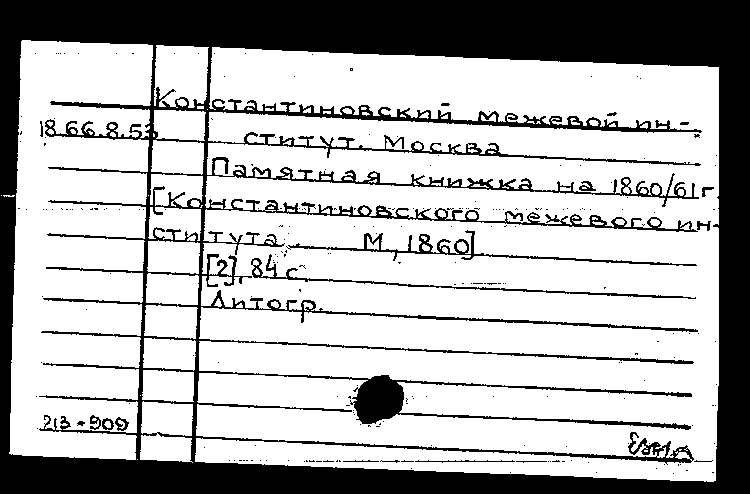 Константиновский межевой ин-
18.66.8.53
ститут. Москва
Памятная книжка на 1860/61 г.
[Константиновского межевого ин-
ститута. М., 1860]
[2], 84 с.
Литогр.
213-909